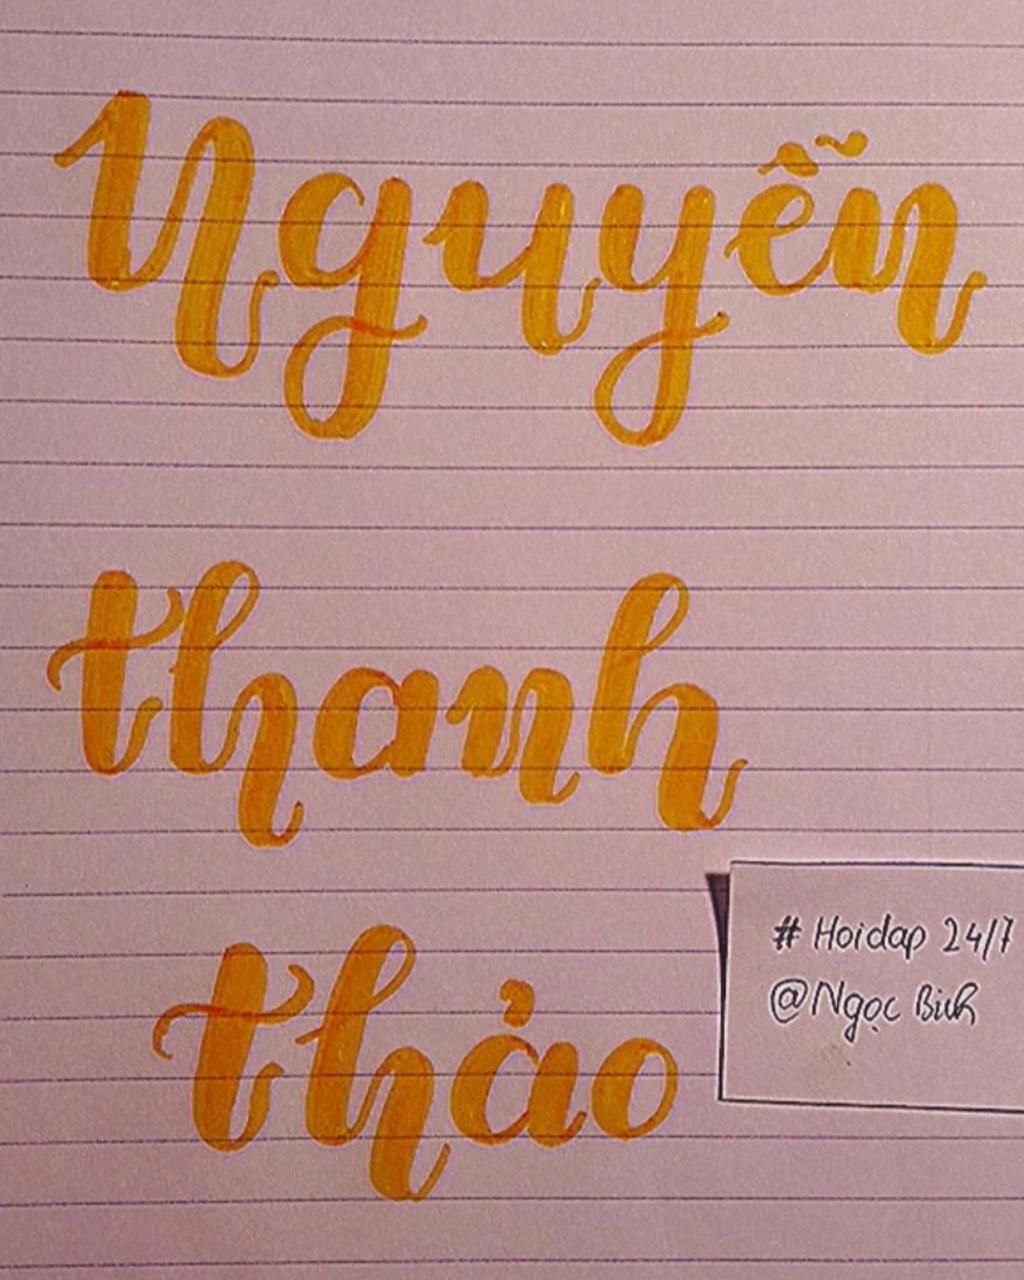 Nguyễn
thanh
thảo
# Hoidap 24/7
@Ngọc Bich